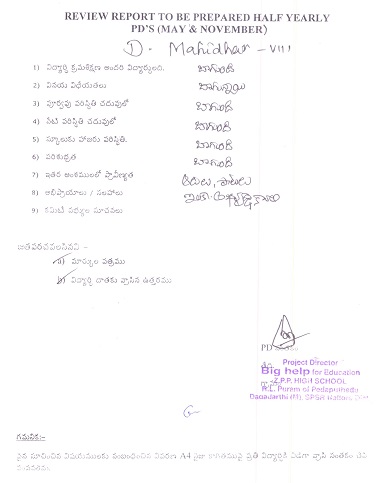 REVIEW REPORT TO BE PREPARED HALF YEARLY
PD'S (MAY & NOVEMBER)
D. Mahidhar - VIII
1) విద్యార్థి క్రమశిక్షణ అందరి విద్యార్థులది. బాగుంది
2) వినయ విధేయతలు బాగున్నాయి
3) పూర్వపు పరిస్థితి చదువులో బాగుంది
4) నేటి పరిస్థితి చదువులో బాగుంది
5) స్కూలుకు హాజరు పరిస్థితి. బాగుంది
6) పరిశుభ్రత బాగుంది
7) ఇతర అంశములలో ప్రావీణ్యత ఆటలు, పాటలు
8) అభిప్రాయాలు / సలహాలు ఇంకా
9) కమిటీ సభ్యుల సూచనలు
జతపరచవలసినవి :-
a) మార్కుల పత్రము
b) విద్యార్థి దాతకు వ్రాసిన ఉత్తరము
PD
Project Director
Big help for Education
Z.P.P. HIGH SCHOOL
Dagadarthi (M), SPSR
గమనిక:-
పైన సూచించిన విషయములకు సంబంధించిన వివరణ A4 సైజు కాగితముపై ప్రతి విద్యార్థికి విడిగా వ్రాసి సంతకం చేసి